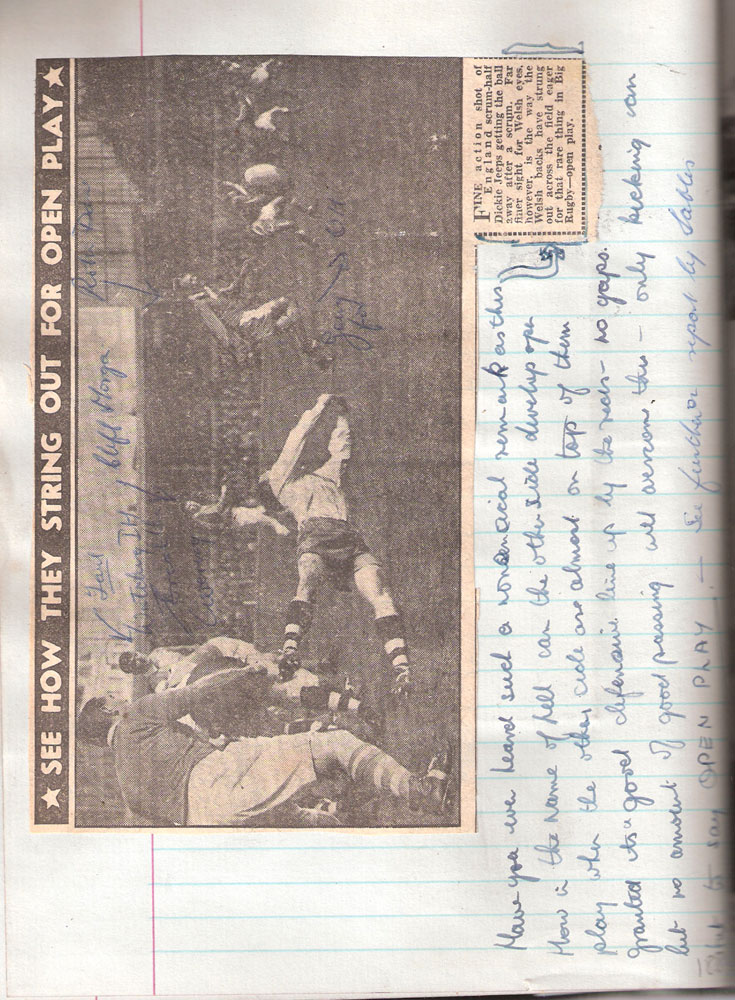 ★ SEE HOW THEY STRING OUT FOR OPEN PLAY ★
Cliff Morgan
FINE action shot of
England scrum-half
Dickie Jeeps getting the ball
away after a scrum. Far
finer sight for Welsh eyes,
however, is the way the
Welsh backs have strung
out across the field eager
for that rare thing in Big
Rugby—open play.
Have you ever heard such a nonsensical remark as this
How in the name of hell can the other side develop open
play when the other side are almost on top of them
granted its a good defensive line up by the reds - no gaps.
but no amount of good passing will overcome this - only kicking can
that to say OPEN PLAY. - See further report by Sables